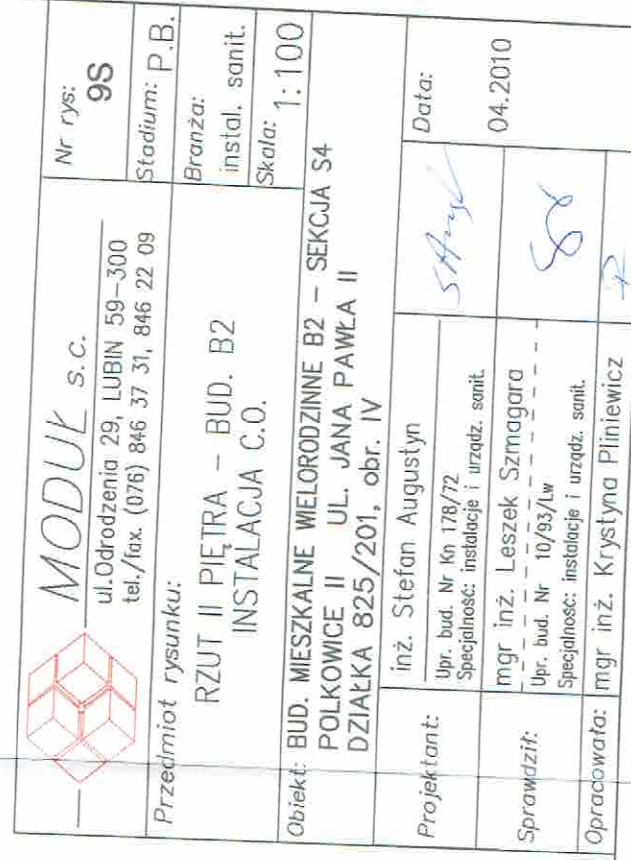 MODUŁ s.c.
ul.Odrodzenia 29, LUBIN 59-300
tel./fax. (076) 846 37 31, 846 22 09
Nr rys:
9S
Przedmiot rysunku:
RZUT II PIĘTRA - BUD. B2
INSTALACJA C.O.
Stadium: P.B.
Branża:
instal. sanit.
Skala: 1:100
Obiekt: BUD. MIESZKALNE WIELORODZINNE B2 - SEKCJA S4
POLKOWICE II UL. JANA PAWŁA II
DZIAŁKA 825/201, obr. IV
Projektant: inż. Stefan Augustyn
Upr. bud. Nr Kn 178/72
Specjalność: instalacje i urządz. sanit.
Data:
04.2010
Sprawdził: mgr inż. Leszek Szmagara
Upr. bud. Nr 10/93/Lw
Specjalność: instalacje i urządz. sanit.
Opracowała: mgr inż. Krystyna Pliniewicz